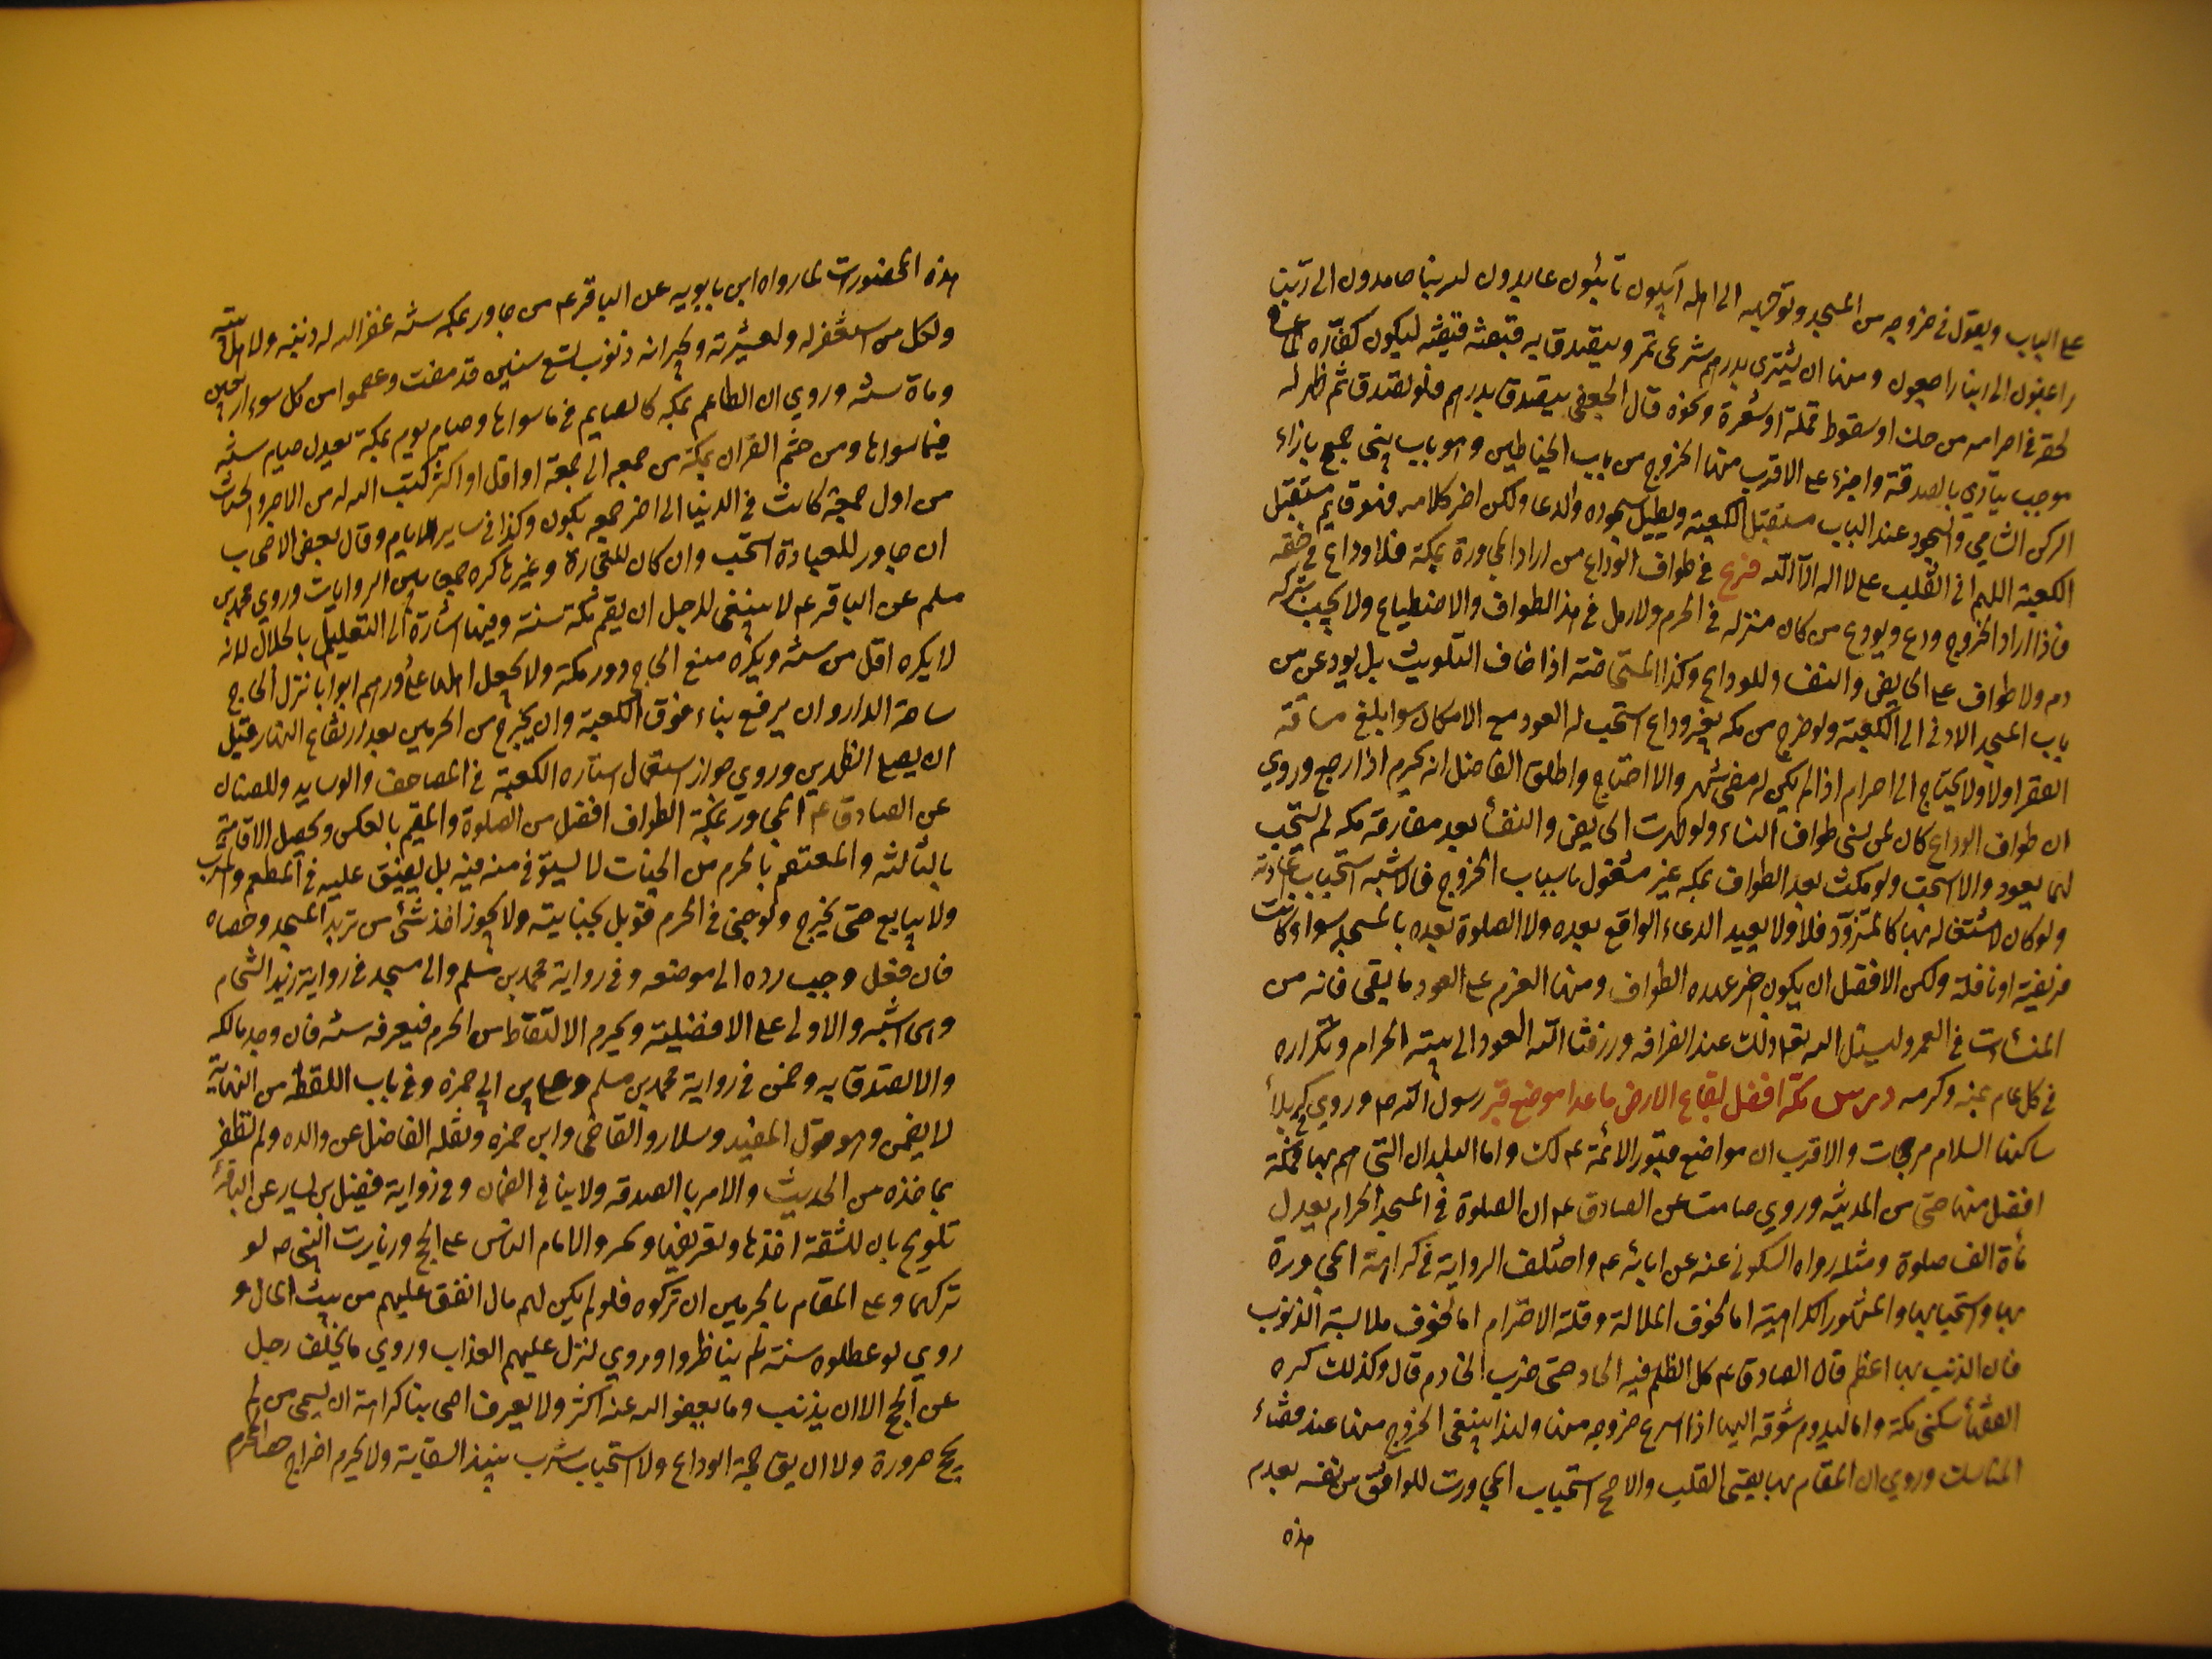 على الباب ويقول في خروجه من المسجد وتوجهه الى اهله آئبون تائبون عابدون لربنا حامدون الى ربنا
راغبون الى ربنا راجعون ومنها ان يشتري بدرهم شرعي تمر ويتصدق به قبضة قبضة ليكون كفارة لما
لحقه في احرامه من حك او سقوط قملة او شعرة ونحوه قال الجعفي يتصدق بدرهم فلو تصدق ثم ظهر له
موجب يتأدى بالصدقة واجزء على الاقرب منها الخروج من باب الحناطين وهو باب بني جمح بازاء
الركن الشامي والسجود عند الباب مستقبل الكعبة ويطيل سجوده والدعا وليكن اخر كلامه وهو قايم مستقبل
الكعبة اللهم اني انقلب على لا اله الا الله فرع في طواف الوداع من اراد المجاورة بمكة فلا وداع في حقه
فاذا اراد الخروج ودع ويودع من كان منزله في الحرم ولا رمل في هذا الطواف والاضطباع ولا يجب بتركه
دم ولا طواف على الحايض والنفساء للوداع وكذا المستحاضة اذا خاف التلويث بل يودعن من
باب المسجد الادنى الى الكعبة ولو خرج من مكه بغير وداع استحب له العود مع الامكان سوا بلغ مسافة
القصر اولا ولا يحتاج الى احرام اذا لم يكن له مضى شهر والا احتاج واطلق الفاضل انه يحرم اذا رجع وروي
ان طواف الوداع كان لمن نسى طواف النساء ولو طهرت الحايض والنفسا بعد مفارقة مكه لم يستحب
لهما العود والا استحب ولو مكث بعد الطواف بمكه غير مشغول باسباب الخروج فالاشبه استحباب اعادته
ولو كان لاشتغاله بها كالتزود فلا ولا يعيد الدعاء الواقع بعده ولا الصلوة بعده بالمسجد سواء كانت
فريضة او نافلة ولكن الافضل ان يكون اخر عهده الطواف ومنها العزم على العود ما بقى فانه من
المنسأت في العمر وليسئل الله تعالى ذلك عند انصرافه ورزقنا الله العود الى بيته الحرام وتكراره
في كل عام بمنه وكرمه درس مكة افضل بقاع الارض ما عدا موضع قبر رسول الله ص وروي كربلا
ساكنها السلام مرجحات والاقرب ان مواضع قبور الائمة عم كك واما البلدان التي هم بها فمكة
افضل منها حتى من المدينه وروي صامت عن الصادق عم ان الصلوة في المسجد الحرام يعدل
مأة الف صلوة ومثله رواه السكوني عنه عن ابائه عم واختلف الرواية في كراهة المجاورة
بها واستحبابها والمشهور الكراهية اما لخوف الملالة وقلة الاحترام اما لخوف ملابسة الذنوب
فان الذنب بها اعظم قال الصادق عم كل الظلم فيه الحاد حتى ضرب الخادم قال وكذلك كره
الفقهأ سكنى مكة واما ليدوم شوقه اليها اذا اسرع خروجه منها ولهذا ينبغي الخروج منها عند قضاء
المناسك وروي ان المقام بها يقسي القلب والاصح استحباب المجاورت للواثق من نفسه بعدم
هذه
هذه المحذورات لما رواه ابن بابويه عن الباقر عم من جاور بمكه سنه غفر الله له ذنبه ولاهل بيته
ولكل من استغفر له ولعشيرته ولجيرانه ذنوب تسع سنين قد مضت وعصموا من كل سوء اربعين
ومأة سنه وروي ان الطاعم بمكه كالصايم في ما سواها وصيام يوم بمكة يعدل صيام سنه
فيما سواها ومن ختم القران بمكة من جمعه الى جمعة او اقل او اكثر كتب الله له من الاجر والحسنات
من اول جمعة كانت في الدنيا الى اخر جمعه يكون وكذا في ساير الايام وقال بعض الاصحاب
ان جاور للعبادة استحب وان كان للتجارة وغيرها كره جمعا بين الروايات وروي محمد بن
مسلم عن الباقر عم لا ينبغي للرجل ان يقم بمكة سنة وفيها اشارة الى التعليل بالملال لانه
لا يكره اقل من سنه ويكره منع الحاج دور مكة ولا يجعل اهلها على دورهم ابوابا نزل الحاج
ساحة الدار وان يرفع بناء فوق الكعبة وان يخرج من الحرمين بعد ارتفاع النهار قبل
ان يصلى الظهرين وروي جواز استعمال ستاره الكعبة في المصاحف والوسايد وللصبيان
عن الصادق عم المجاور بمكة الطواف افضل من الصلوة والمقيم بالعكس وتحصل الاقامة
بالثالثه والمعتصم بالحرم من الجنات لا يستوفى منه فيه بل يضيق عليه في المطعم والمشرب
ولا يبايع حتى يخرج ولو جنى في الحرم قوبل بجنايته ولا يجوز اخذ شئ من تربة المسجد وحصاه
فان فعل وجب رده الى موضعه وفي رواية محمد بن مسلم والى مسجد في رواية زيد الشحام
وهى اشبه والاولى على الافضلية ويحرم الالتقاط من الحرم فيعرفه سنه فان وجد مالكه
والا تصدق به وضمن في رواية محمد بن مسلم وعلي بن ابي حمزه وفي باب اللقطه من النهاية
لا يضمن وهو قول المفيد وسلار والقاضي وابن حمزه ونقله الفاضل عن والده ولم نظفر
بماخذه من الحديث والامر بالصدقه ولا ينافي الضمان وفي رواية فضيل بن يسار عن الباقر
تلويح بان للثقة اخذها وتعريفها ويجبر الامام الناس على الحج وزيارت النبي ص لو
تركهما وعلى المقام بالحرمين ان تركوه فلو لم يكن لهم مال انفق عليهم من بيت المال و
روي لو عطلوه سنة لم يناظروا وروي لنزل عليهم العذاب وروي ما تخلف رجل
عن الحج الا ان يذنب وما يعفو الله عنه اكثر ولا يعرف اصحابنا كراهة ان يسمى من لم
يحج صرورة ولا ان يق حجة الوداع ولا استحباب شرب نبيذ السقاية ولا يحرم اخراج حصا الحرم